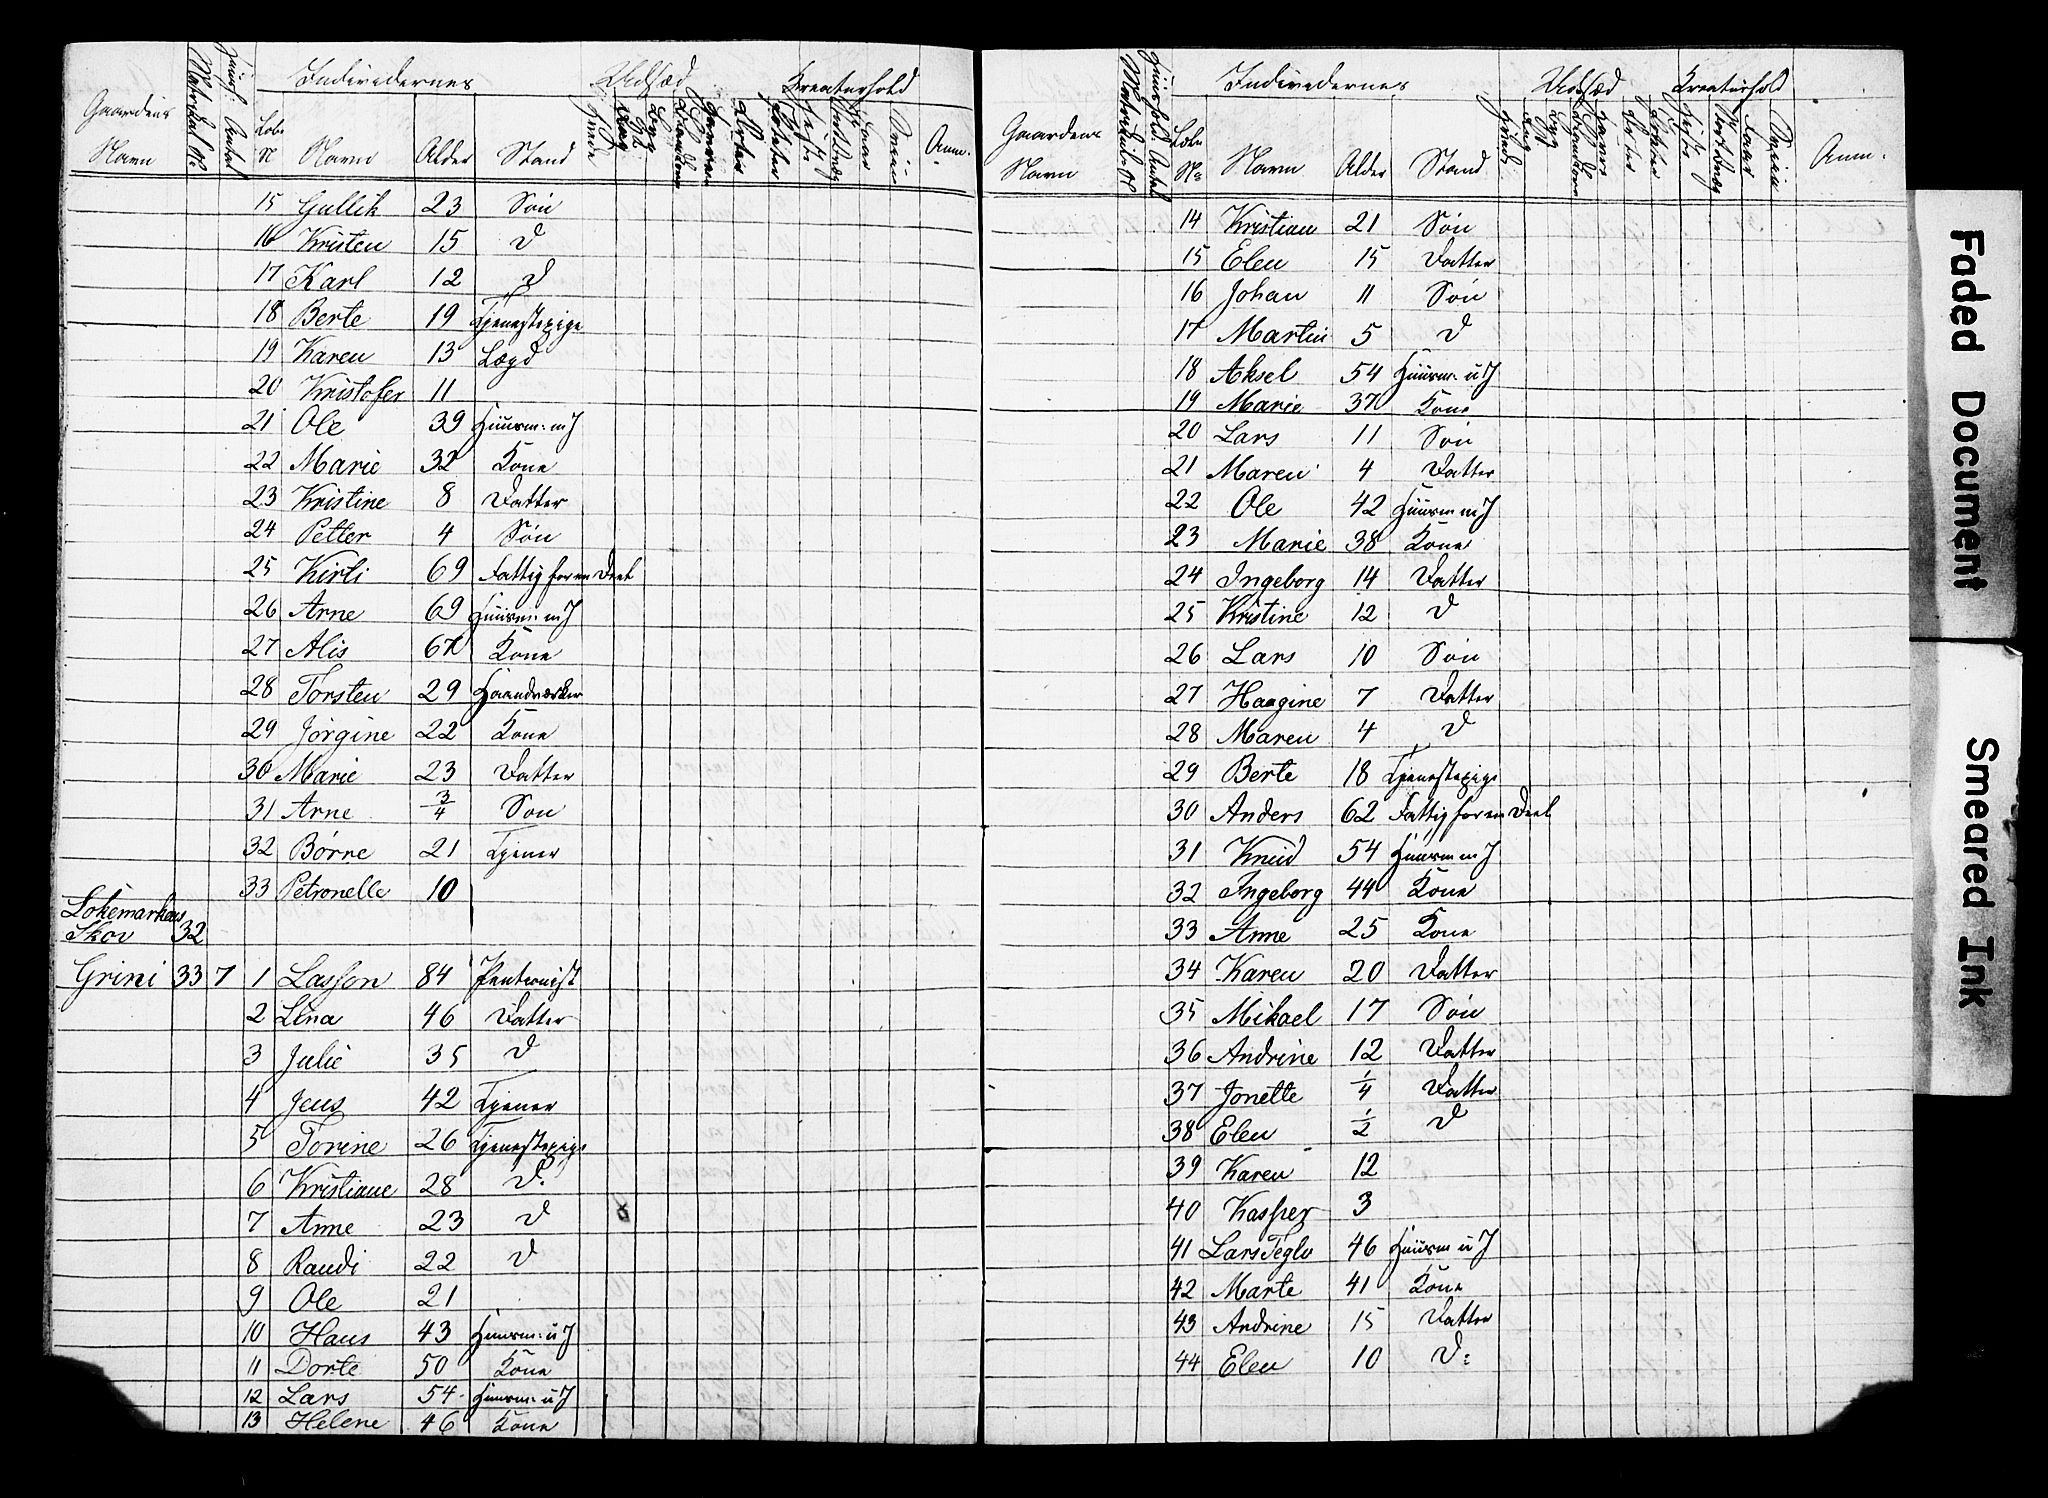 Gaardens Navn
Matrikel №
Huush: Antal
Individernes
Løbe N
Navn
Alder
Stand
Udsæd
Hvede
Rug
Byg
Havre
Erter
Poteter
Kreaturhold
Heste
Faar
Sviin
Anm.
15 Gullik 23 Søn
16 Kristen 15 D
17 Karl 12 D
18 Berte 19 Tjenestepige
19 Karen 13 Lægd
20 Kristofer 11
21 Ole 39 Huusm: m J
22 Marie 32 Kone
23 Kristine 8 Datter
24 Petter 4 Søn
25 Kirti 69 Fattig for en Deel
26 Arne 69 Huusm: m J
27 Alis 67 Kone
28 Torsten 29 Haandværker
29 Jørgine 22 Kone
30 Marie 23 Datter
31 Arne 3/4 Søn
32 Børne 21 Tjener
33 Petronelle 10
Skov 32
Grini 33 7 1 Lasson 84 Pentionist
2 Lina 46 Datter
3 Julie 35 D
4 Jens 42 Tjener
5 Torine 26 Tjenestepige
6 Kristiane 28 D.
7 Anne 23 D
8 Randi 22 D
9 Ole 21
10 Hans 43 Huusm: u J
11 Dorte 50 Kone
12 Lars 54 Huusm: u J
13 Helene 46 Kone
Gaardens Navn
Matrikel №
Huushold: Antal
Individernes
Løbe №
Navn
Alder
Stand
Udsæd
Hvede
Rug
Byg
Blandkorn
Havre
Erter
Poteter
Kreaturhold
Heste
Stort Qvæg
Faar
Sviin
Anm.
14 Kristian 21 Søn
15 Elen 15 Datter
16 Johan 11 Søn
17 Martin 5 D
18 Aksel 54 Huusm: u J
19 Marie 37 Kone
20 Lars 11 Søn
21 Maren 4 Datter
22 Ole 42 Huusm m J
23 Marie 38 Kone
24 Ingeborg 14 Datter
25 Kristine 12 D
26 Lars 10 Søn
27 Haagine 7 Datter
28 Maren 4 D
29 Berte 18 Tjenestepige
30 Anders 62 Fattig for en Deel
31 Knud 54 Huusm m J
32 Ingeborg 44 Kone
33 Anne 25 Kone
34 Karen 20 Datter
35 Mikael 17 Søn
36 Andrine 12 Datter
37 Jonette 1/4 Datter
38 Elen 1/2 D
39 Karen 12
40 Kasper 3
41 Lars Teglv 46 Huusm u J
42 Marte 41 Kone
43 Andrine 15 Datter
44 Elen 10 D:
Faded Document
Smeared Ink